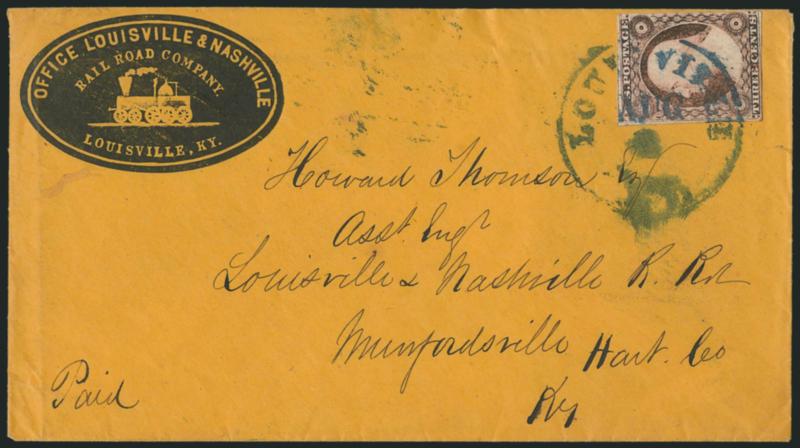 OFFICE LOUISVILLE & NASHVILLE
RAIL ROAD COMPANY.
LOUISVILLE, KY.
POSTAGE.
THREE CENTS
LOUISVI
AUG
Howard Thomson Esq
Asst. Engr
Louisville & Nashville R. Rd
Munfordsville Hart. Co
Ky
Paid